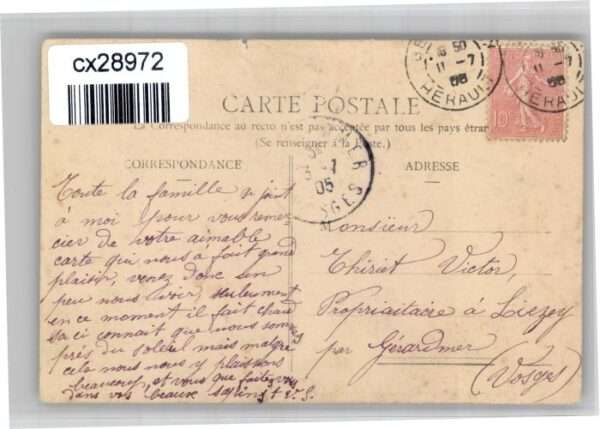 cx28972
16 50
11 -7
05
HERAULT
10
CARTE POSTALE
La Correspondance au recto n'est pas acceptée par tous les pays étran
(Se renseigner à la Poste.)
CORRESPONDANCE
Toute la famille se joint
à moi pour vous remer-
cier de votre aimable
carte qui nous a fait grand
plaisir, venez donc un
peu nous voir, seulement
en ce moment il fait chaud
sa ci connait que nous sommes
près du soleil mais malgré
cela nous nous y plaisons
beaucoup, et vous que faites vous
dans vos beaux sapins
ADRESSE
Monsieur
Thiriet Victor,
Propriaitaire à Liezey
par Gérardmer
(Vosges)